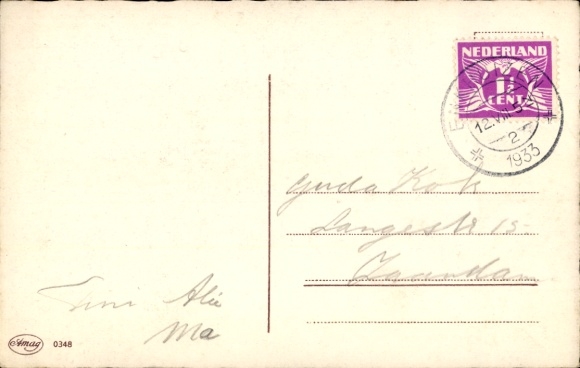 NEDERLAND
1½
CENT
12.VIII.5
2
1933
Guda Kok
Langestr 15.
Zaandam
Alie
Ma
Amag 0348